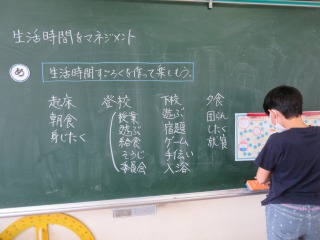 生活時間をマネジメント
め
生活時間すごろくを作って楽しもう。
起床
朝食
身じたく
登校
授業
遊ぶ
給食
そうじ
委員会
下校
遊ぶ
宿題
ゲーム
手伝い
入浴
夕食
団らん
したく
就寝